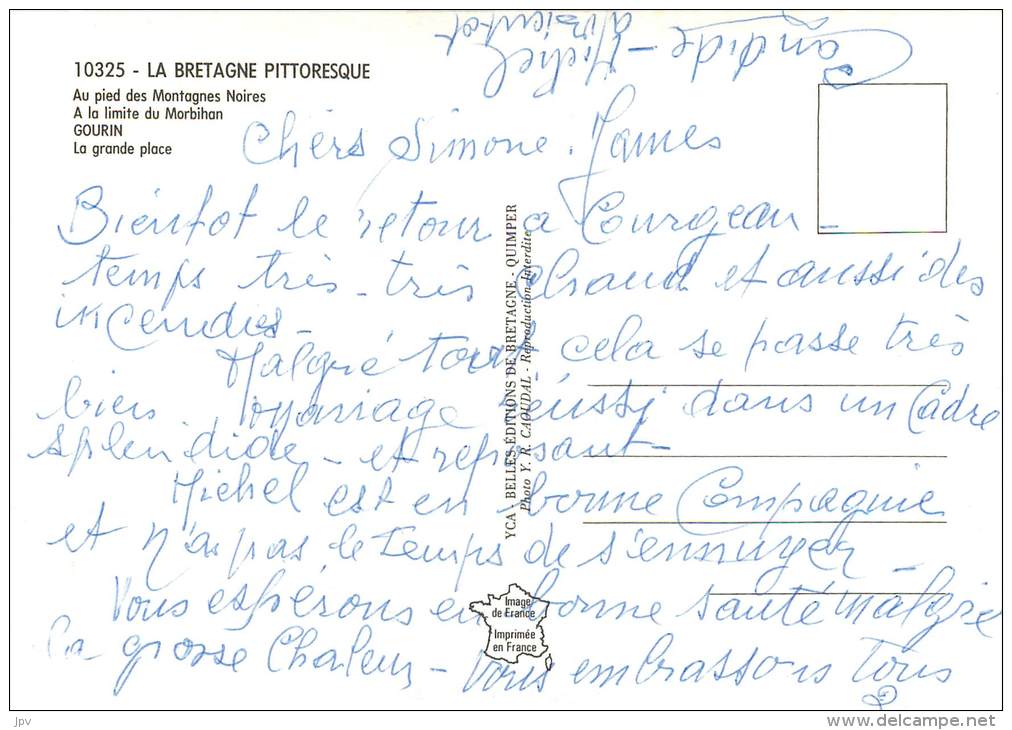 10325 - LA BRETAGNE PITTORESQUE
Au pied des Montagnes Noires
A la limite du Morbihan
GOURIN
La grande place
Chèrs Simone. James
Bientot le retour a Courgeau -
temps très - très chaud et aussi des
incendies -
Malgré tout cela se passe très
bien mariage réussi dans un Cadre
splendide - et reposant -
Michel est en bonne Compagnie
et n'a pas le temps de s'ennuyer -
Vous espérons en bonne santé malgré
la grosse Chaleur - Vous embrassons Tous
Candide - Michel
a bientot
YCA - BELLES ÉDITIONS DE BRETAGNE - QUIMPER
Photo Y. R. CAOUDAL - Reproduction Interdite
Image
de France
Imprimée
en France
jpv
delcampe.net